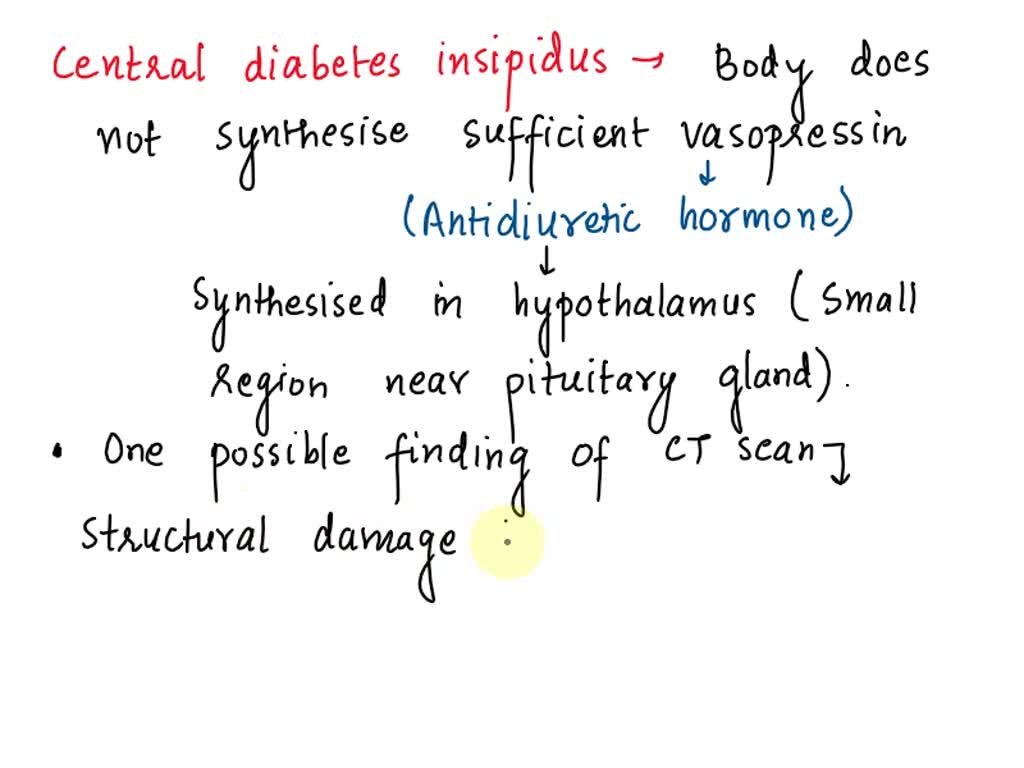 Central diabetes insipidus → Body does
not synthesise sufficient vasopressin
↓
(Antidiuretic hormone)
↓
Synthesised in hypothalamus (Small
region near pituitary gland).
• One possible finding of CT scan ↓
Structural damage